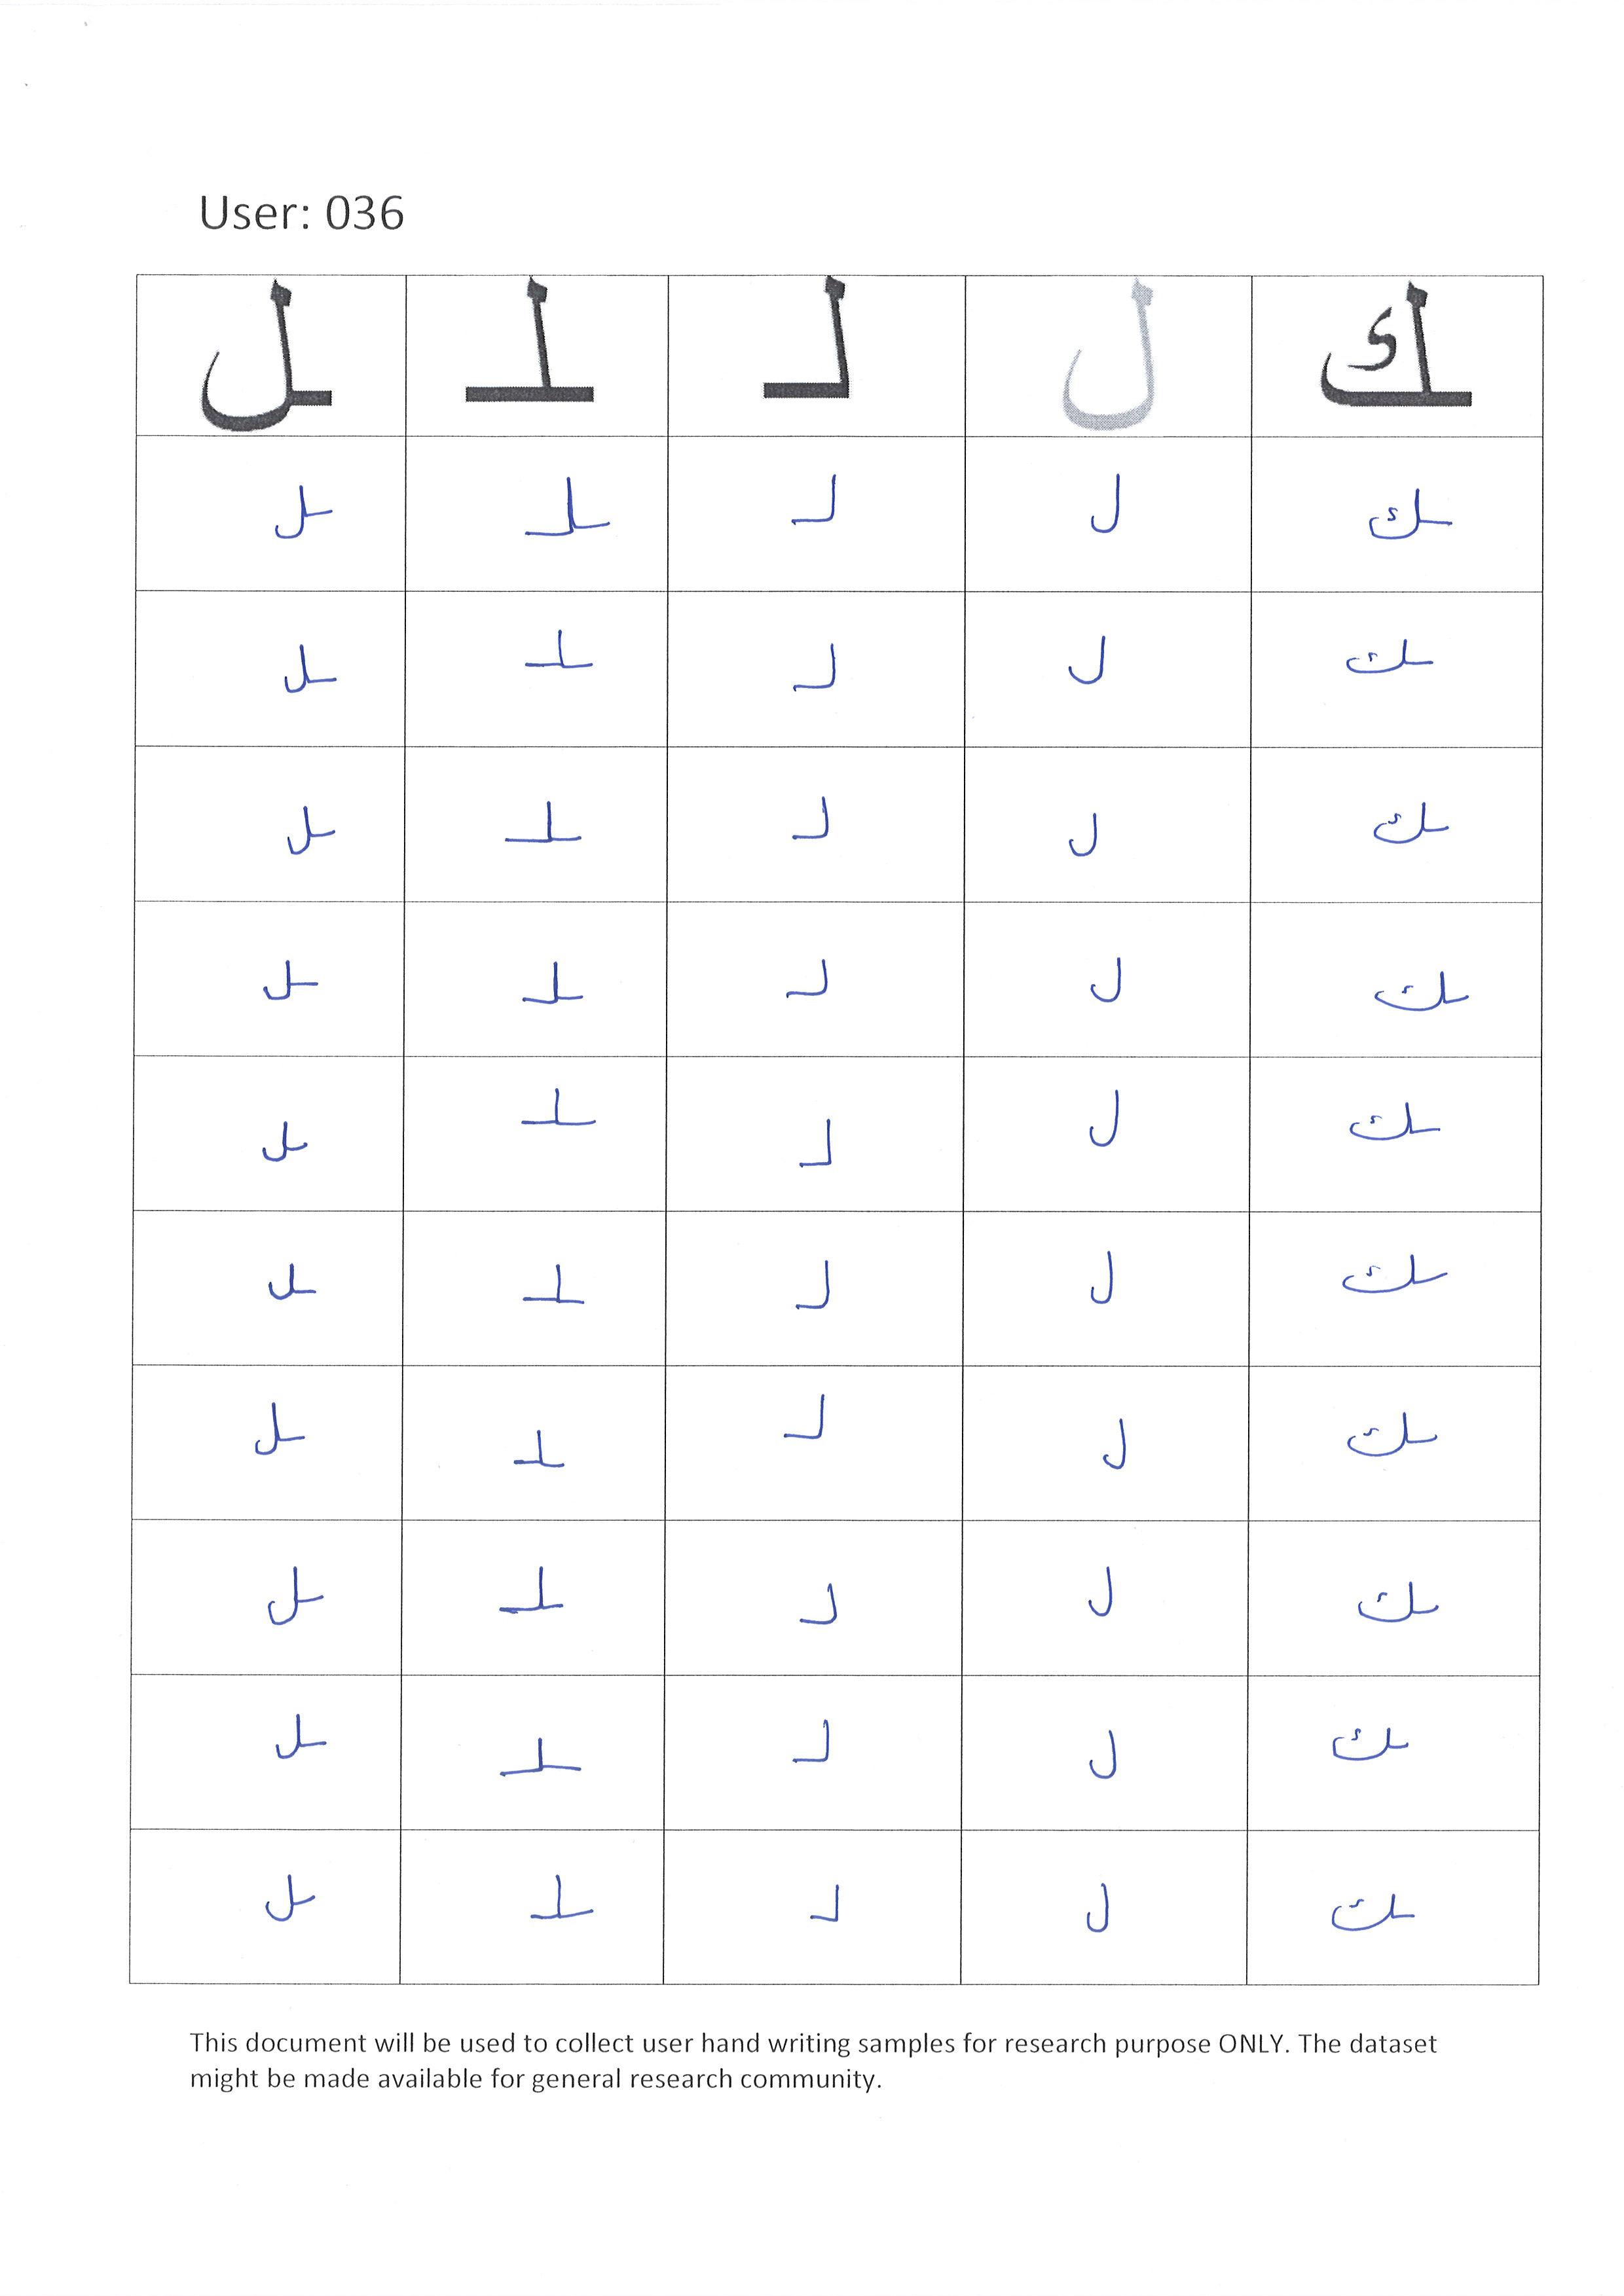 User: 036
ـل ـلـ لـ ل ـك
ـل ـلـ لـ ل ـك
ـل ـلـ لـ ل ـك
ـل ـلـ لـ ل ـك
ـل ـلـ لـ ل ـك
ـل ـلـ لـ ل ـك
ـل ـلـ لـ ل ـك
ـل ـلـ لـ ل ـك
ـل ـلـ لـ ل ـك
ـل ـلـ لـ ل ـك
ـل ـلـ لـ ل ـك
This document will be used to collect user hand writing samples for research purpose ONLY. The dataset
might be made available for general research community.